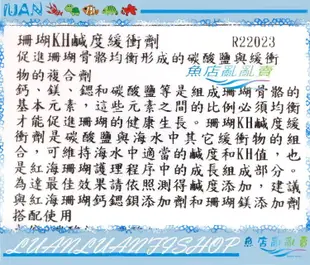 IUAN
珊瑚KH鹹度緩衝劑 R22023
魚店亂亂賣
促進珊瑚骨骼均衡形成的碳酸鹽與緩衝
物的複合劑
鈣、鎂、鍶和碳酸鹽等是組成珊瑚骨骼的
基本元素，這些元素之間的比例必須均衡
才能促進珊瑚的健康生長。珊瑚KH鹹度緩
衝劑是碳酸鹽與海水中其它緩衝物的組
合，可維持海水中適當的鹹度和KH值，也
是紅海珊瑚護理程序中的成長組成部分。
為達最佳效果請依照測得鹹度添加，建議
與紅海珊瑚鈣鍶鋇添加劑和珊瑚鎂添加劑
搭配使用
LUANLUANFISHOP
魚店亂亂賣